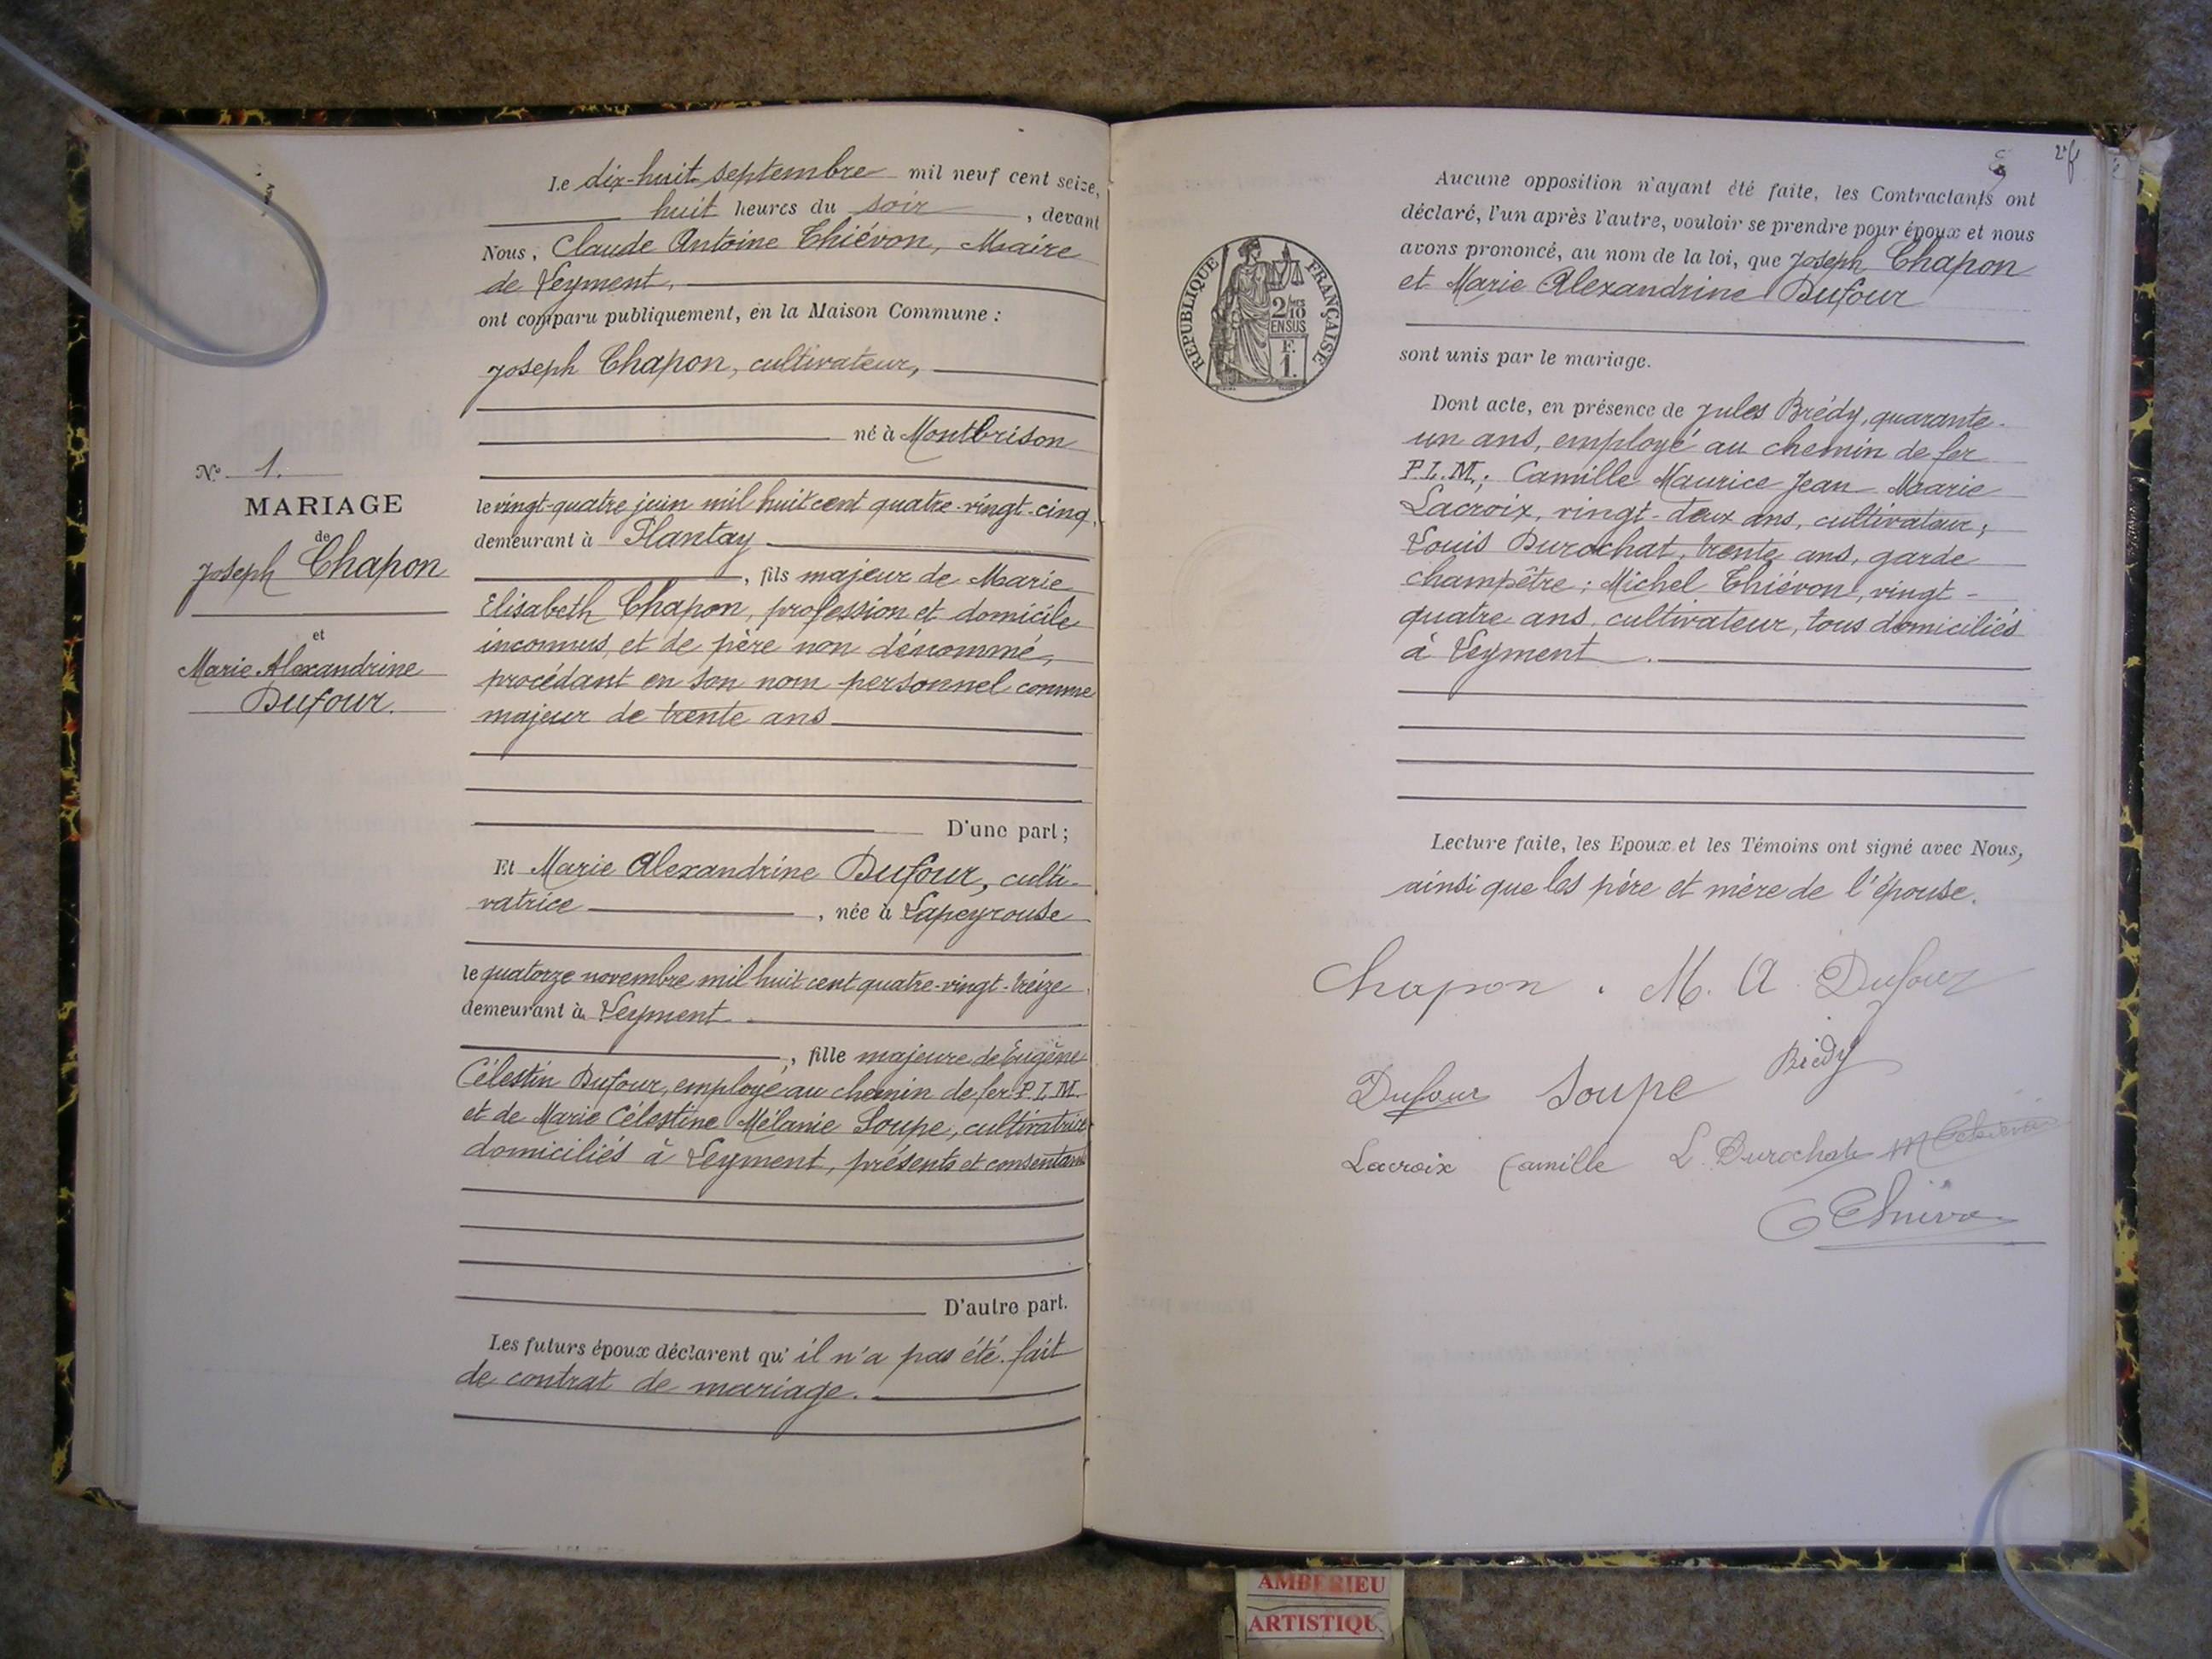 Le dix-huit septembre mil neuf cent seize,
huit heures du soir, devant
Nous, Claude Antoine Thiévon, Maire
de Leyment,
ont comparu publiquement, en la Maison Commune :
Joseph Chapon, cultivateur,
né à Montbrison
le vingt-quatre juin mil huit cent quatre-vingt-cinq,
demeurant à Plantay
, fils majeur de Marie
Elisabeth Chapon, profession et domicile
inconnus, et de père non dénommé,
procédant en son nom personnel comme
majeur de trente ans
D'une part ;
Et Marie Alexandrine Dufour, culti-
vatrice, née à Lapeyrouse
le quatorze novembre mil huit cent quatre-vingt-treize,
demeurant à Leyment
, fille majeure de Eugène
Célestin Dufour, employé au chemin de fer P.L.M.
et de Marie Célestine Mélanie Soupe, cultivatrice
domiciliés à Leyment, présents et consentants
D'autre part.
Les futurs époux déclarent qu'il n'a pas été fait
de contrat de mariage.
N° 1.
MARIAGE
de
Joseph Chapon
et
Marie Alexandrine
Dufour.
Aucune opposition n'ayant été faite, les Contractants ont
déclaré, l'un après l'autre, vouloir se prendre pour époux et nous
avons prononcé, au nom de la loi, que Joseph Chapon
et Marie Alexandrine Dufour
sont unis par le mariage.
Dont acte, en présence de Jules Brédy, quarante-
un ans, employé au chemin de fer
P.L.M.; Camille Maurice Jean Marie
Lacroix, vingt-deux ans, cultivateur;
Louis Durochat, trente ans, garde
champêtre; Michel Thiévon, vingt-
quatre ans, cultivateur, tous domiciliés
à Leyment.
Lecture faite, les Epoux et les Témoins ont signé avec Nous,
ainsi que les père et mère de l'épouse.
Chapon. M. A. Dufour
Dufour Soupe Brédy
Lacroix Camille L. Durochat
REPUBLIQUE FRANÇAISE
2/10
EN SUS
F.
1.
AMBERIEU
ARTISTIQUE